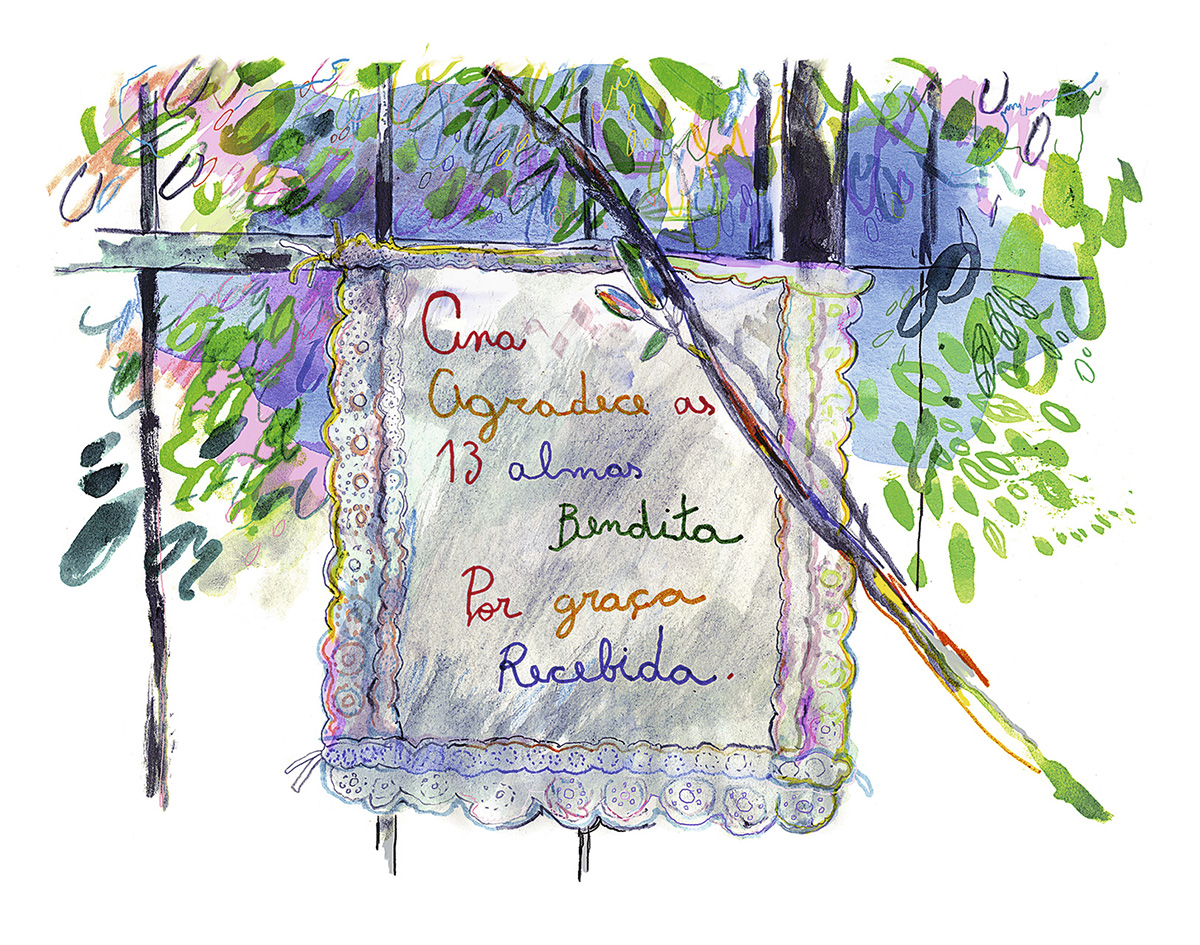 Ana
Agradece as
13 almas
Bendita
Por graça
Recebida.